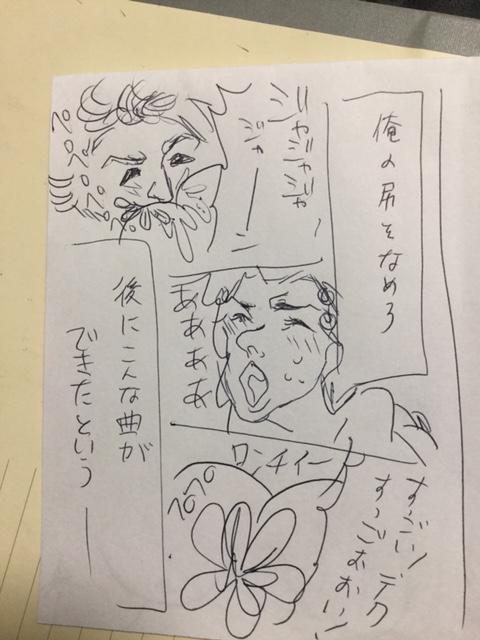 俺の尻をなめろ
ジャジャジャ
ジャ——
ペペペペ
ああああ
ロンチィー
すごい!デク
すーごおおい!
ペロペロ
後にこんな曲が
できたという——